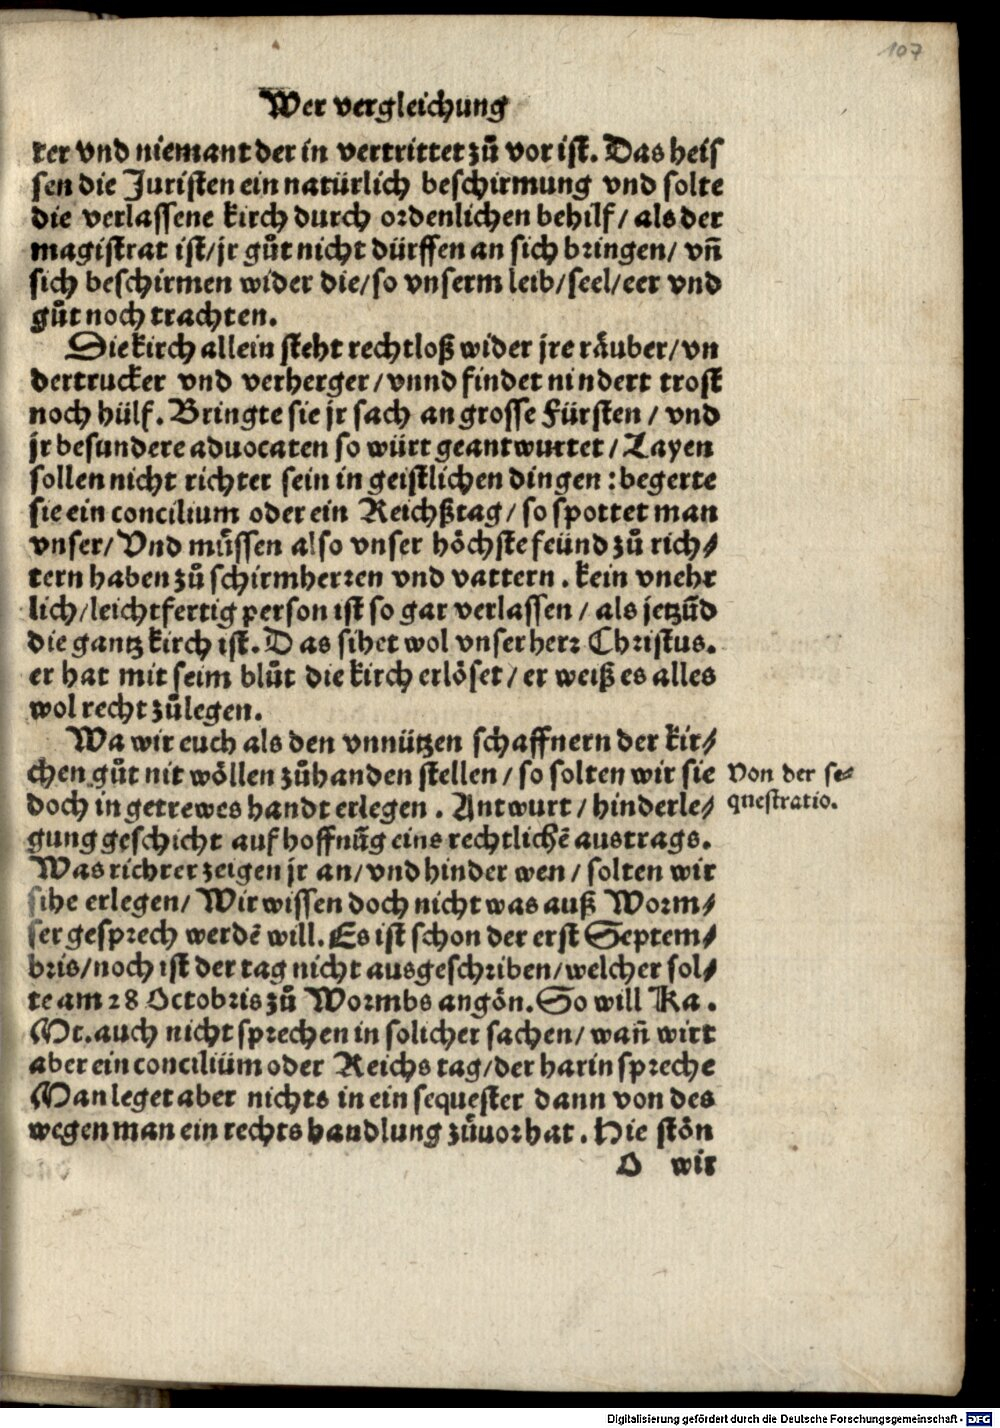 107
Wer vergleichung
ter vnd niemant der in vertrittet zuͦ vor ist. Das heis
sen die Juristen ein natürlich beschirmung vnd solte
die verlassene kirch durch ordenlichen behilf/ als der
magistrat ist/ jr guͦt nicht dürffen an sich bringen/ vn̄
sich beschirmen wider die/ so vnserm leib/ seel/ eer vnd
guͦt noch trachten.
Die kirch allein steht rechtloß wider jre räuber/ vn
dertrucker vnd verherger/ vnnd findet nindert trost
noch hülf. Bringte sie jr sach an grosse Fürsten/ vnd
jr besundere aduocaten so würt geantwurtet/ Layen
sollen nicht richter sein in geistlichen dingen: begerte
sie ein concilium oder ein Reichßtag/ so spottet man
vnser/ Vnd müssen also vnser höchste feünd zuͦ rich⸗
tern haben zuͦ schirmherren vnd vattern. kein vnehr
lich/ leichtfertig person ist so gar verlassen/ als jetzūd
die gantz kirch ist. Das sihet wol vnser herr Christus.
er hat mit seim bluͦt die kirch erlöset/ er weiß es alles
wol recht zuͦlegen.
Wa wir euch als den vnnützen schaffnern der kir⸗
chen guͦt nit wöllen zuͦhanden stellen/ so solten wir sie
doch in getrewes handt erlegen. Antwurt/ hinderle⸗
gung geschicht auf hoffnūg eins rechtlichē austrags.
Was richrer zeigen jr an/ vnd hinder wen/ solten wir
sihe erlegen/ Wir wissen doch nicht was auß Worm⸗
ser gesprech werdē will. Es ist schon der erst Septem⸗
bris/ noch ist der tag nicht ausgeschriben/ welcher sol⸗
te am 28 Octobris zuͦ Wormbs angön. So will Ka.
Mt. auch nicht sprechen in solicher sachen/ wan̄ wirt
aber ein concilium oder Reichs tag/ der harin spreche
Man leget aber nichts in ein sequester dann von des
wegen man ein rechts handlung zuͦuor hat. Hie stön
O wir
Von der se⸗
questratio.
Digitalisierung gefördert durch die Deutsche Forschungsgemeinschaft - DFG